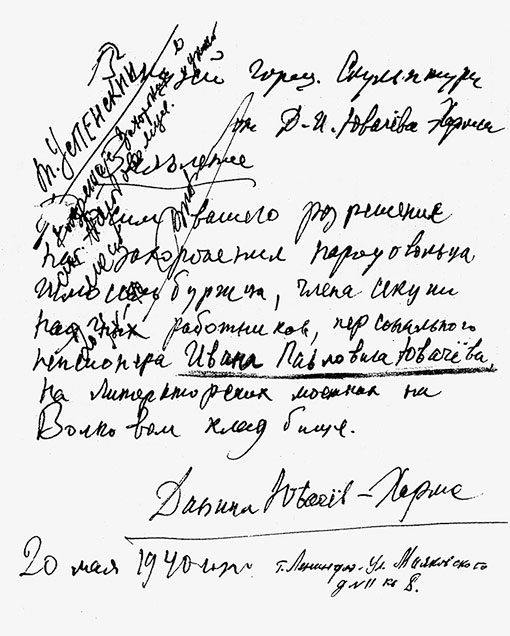 В Музей Город. Скульптуры
от Д. И. Ювачёва-Хармса
Заявление
Прошу Вашего разрешения
на захоронение народовольца
Шлиссельбуржца, члена секции
научных работников, персонального
пенсионера Ивана Павловича Ювачёва,
на Литераторских мостках на
Волковом кладбище.
Даниил Ювачёв-Хармс
20 мая 1940 года
г. Ленинград. Ул. Маяковского
д № 11 кв 8.
т. Успенский